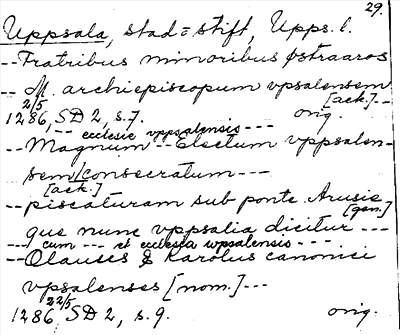 29.
Uppsala, stad = stift, Upps. l.
-- Fratribus minoribus østraaros
-- M. archiepiscopum vpsalensem
[ack.] --
2/5
1286, SD 2, s. 7. orig.
-- ecclesie vppsalensis ---
-- Magnum -- Electum vppsalen-
sem/consecratum ---
[ack.]
-- piscaturam sub ponte Arusie
[gen.]
que nunc vppsalia dicitur ---
--- cum --- et ecclesia wpsalensis ---
-- Olauus & Karolus canonici
vpsalenses [nom.] ---
22/5
1286 SD 2, s. 9. orig.